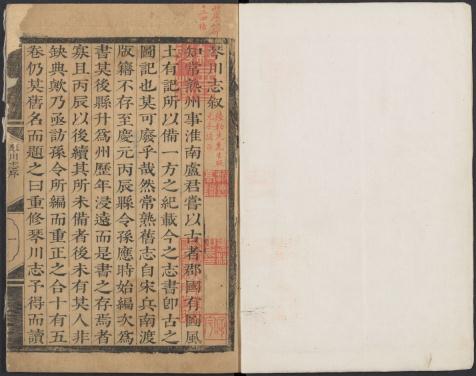 琴川志叙
知常熟州事淮南盧君嘗以古者郡國有圖風
土有記所以備一方之紀載今之志書即古之
圖記也其可廢乎哉然常熟舊志自宋兵南渡
版籍不存至慶元丙辰縣令孫應時始編次爲
書其後縣升爲州歷年浸遠而是書之存焉者
寡且丙辰以後續其所未備者後未有其人非
缺典歟乃亟訪孫令所編而重正之合十有五
卷仍其舊名而題之曰重修琴川志予得而讀
琴川志序